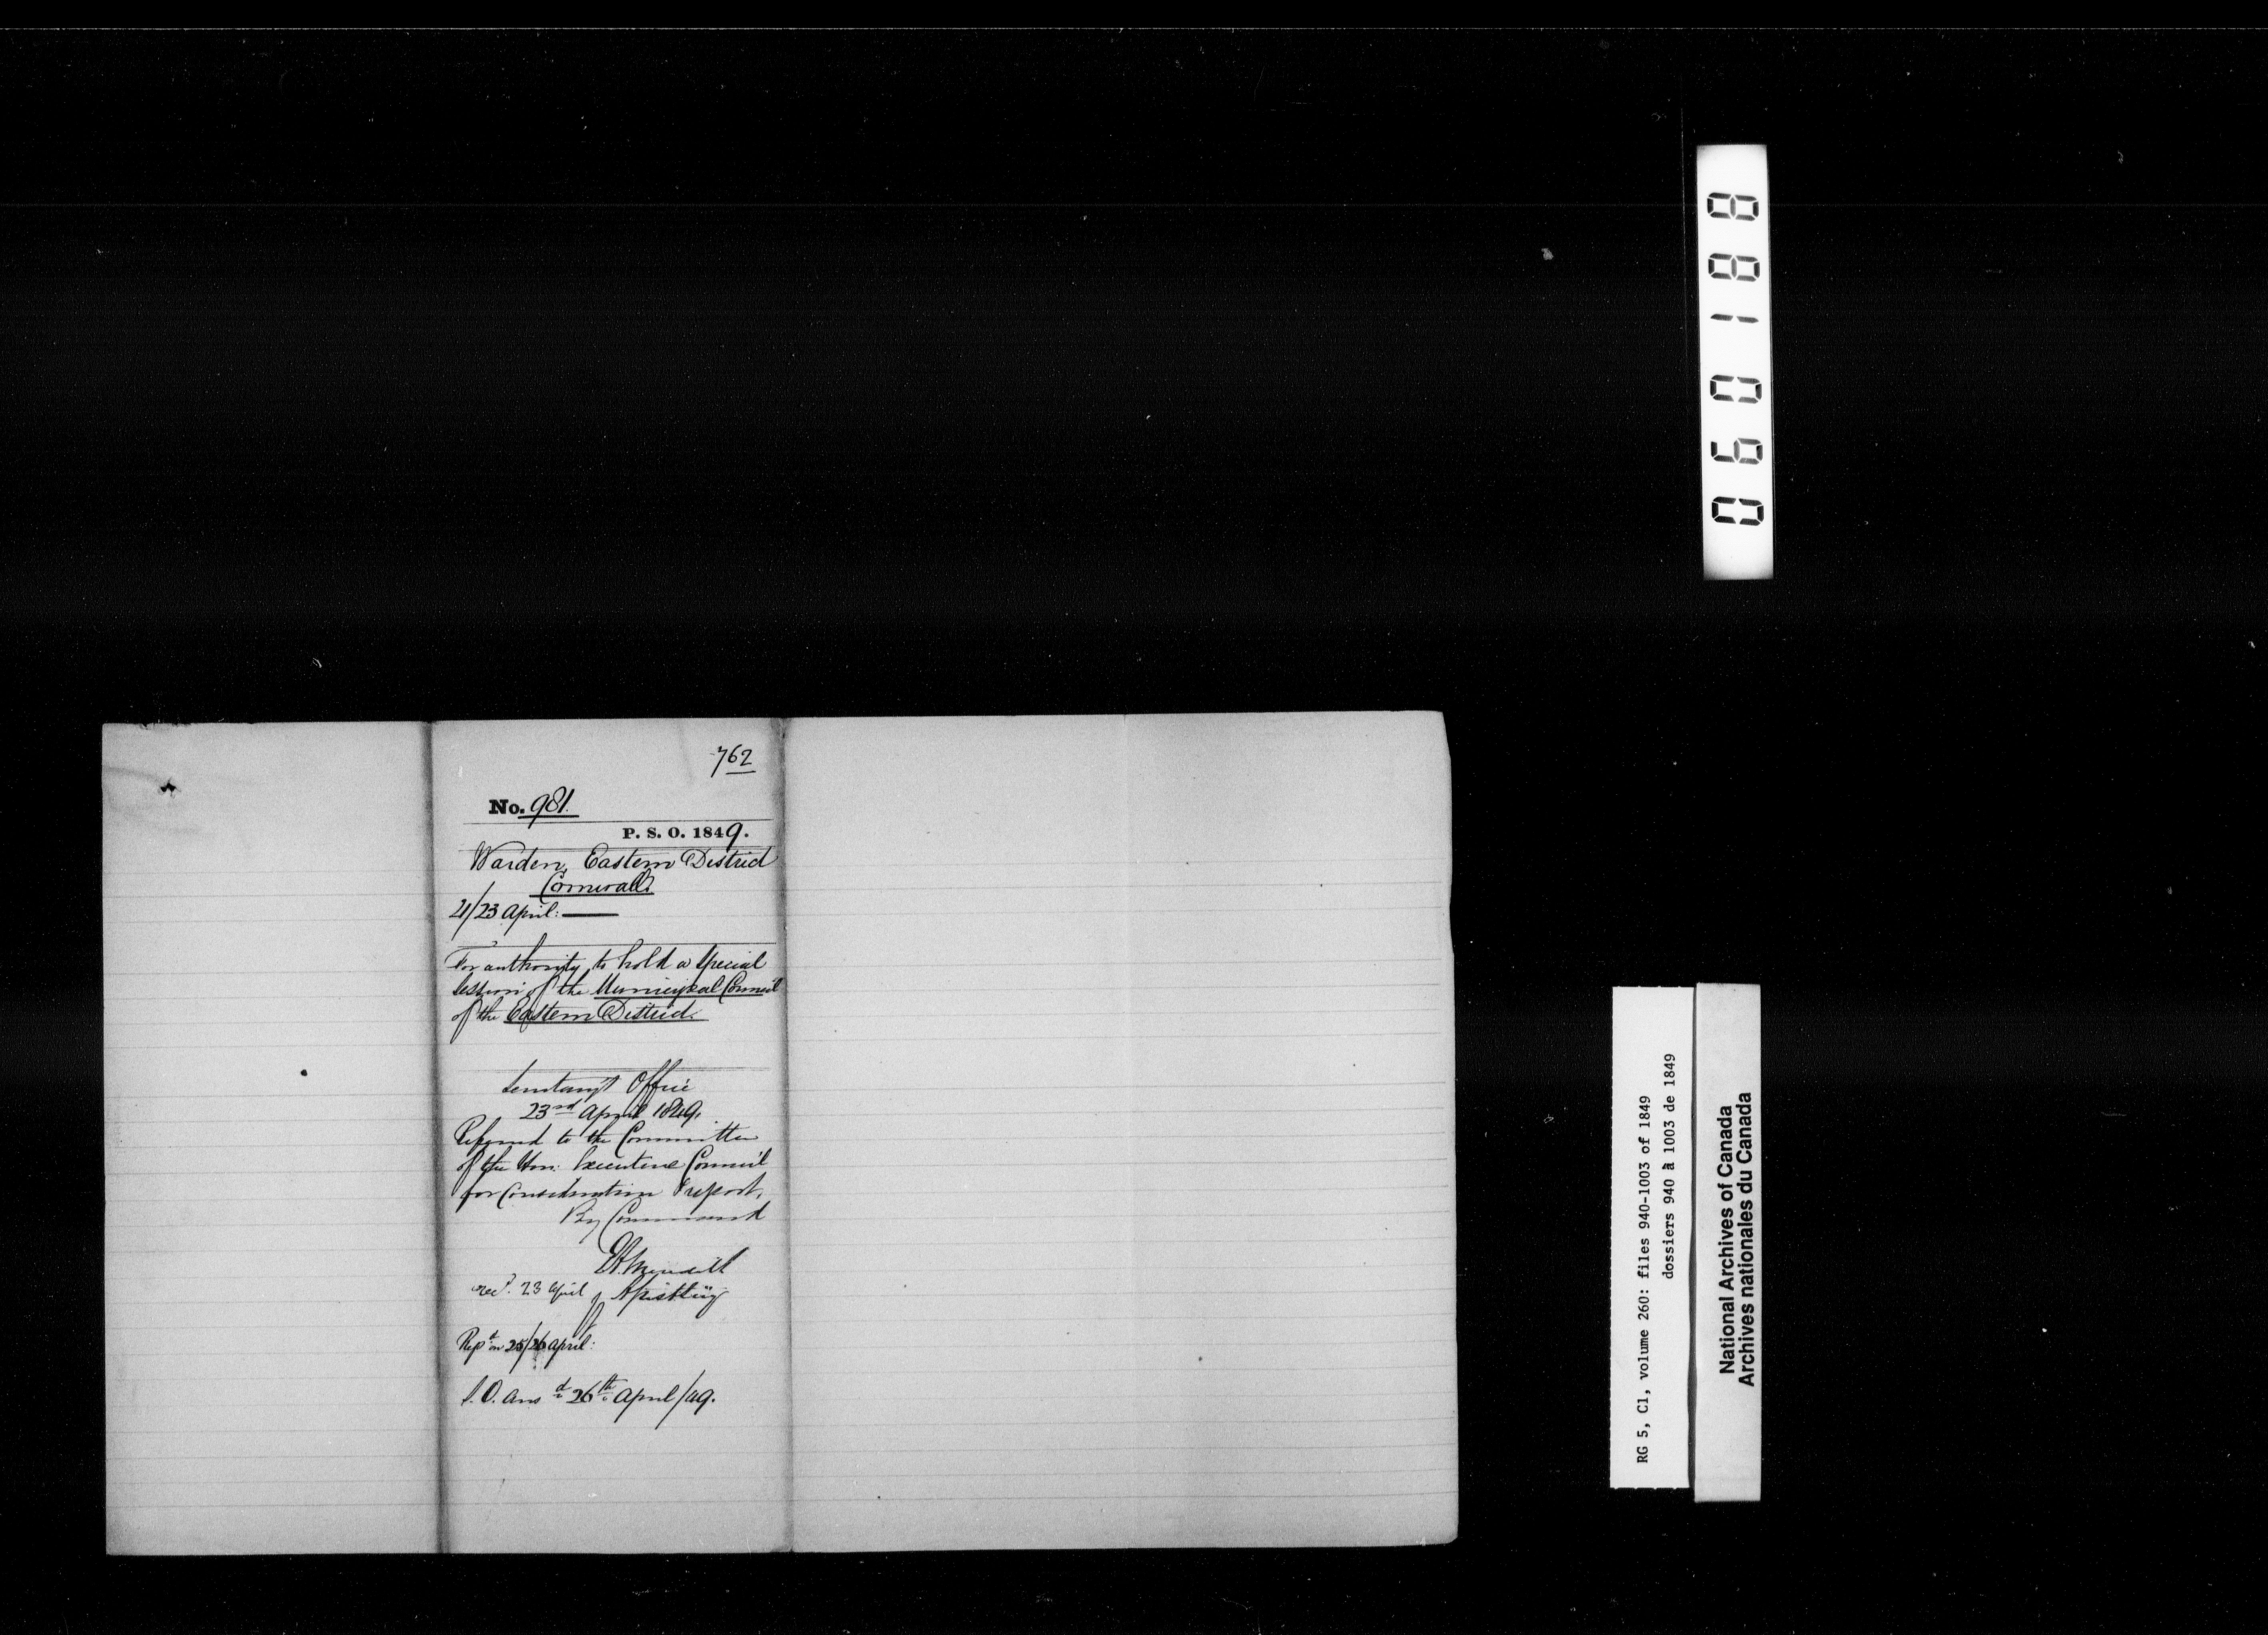 762
No. 981.
P. S. O. 1849.
Warden, Eastern District
Cornwall.
21/23 April: —
For authority to hold a Special
Session of the Municipal Council
of the Eastern District.
Secretary's Office
23rd April 1849.
Referred to the Committee
of the Hon: Executive Council
for Consideration & report,
By Command
recd. 23 April
Repd on 25/26 April:
S.O. Ansd 26th April/49.
060188
RG 5, C1, volume 260: files 940-1003 of 1849
dossiers 940 à 1003 de 1849
National Archives of Canada
Archives nationales du Canada